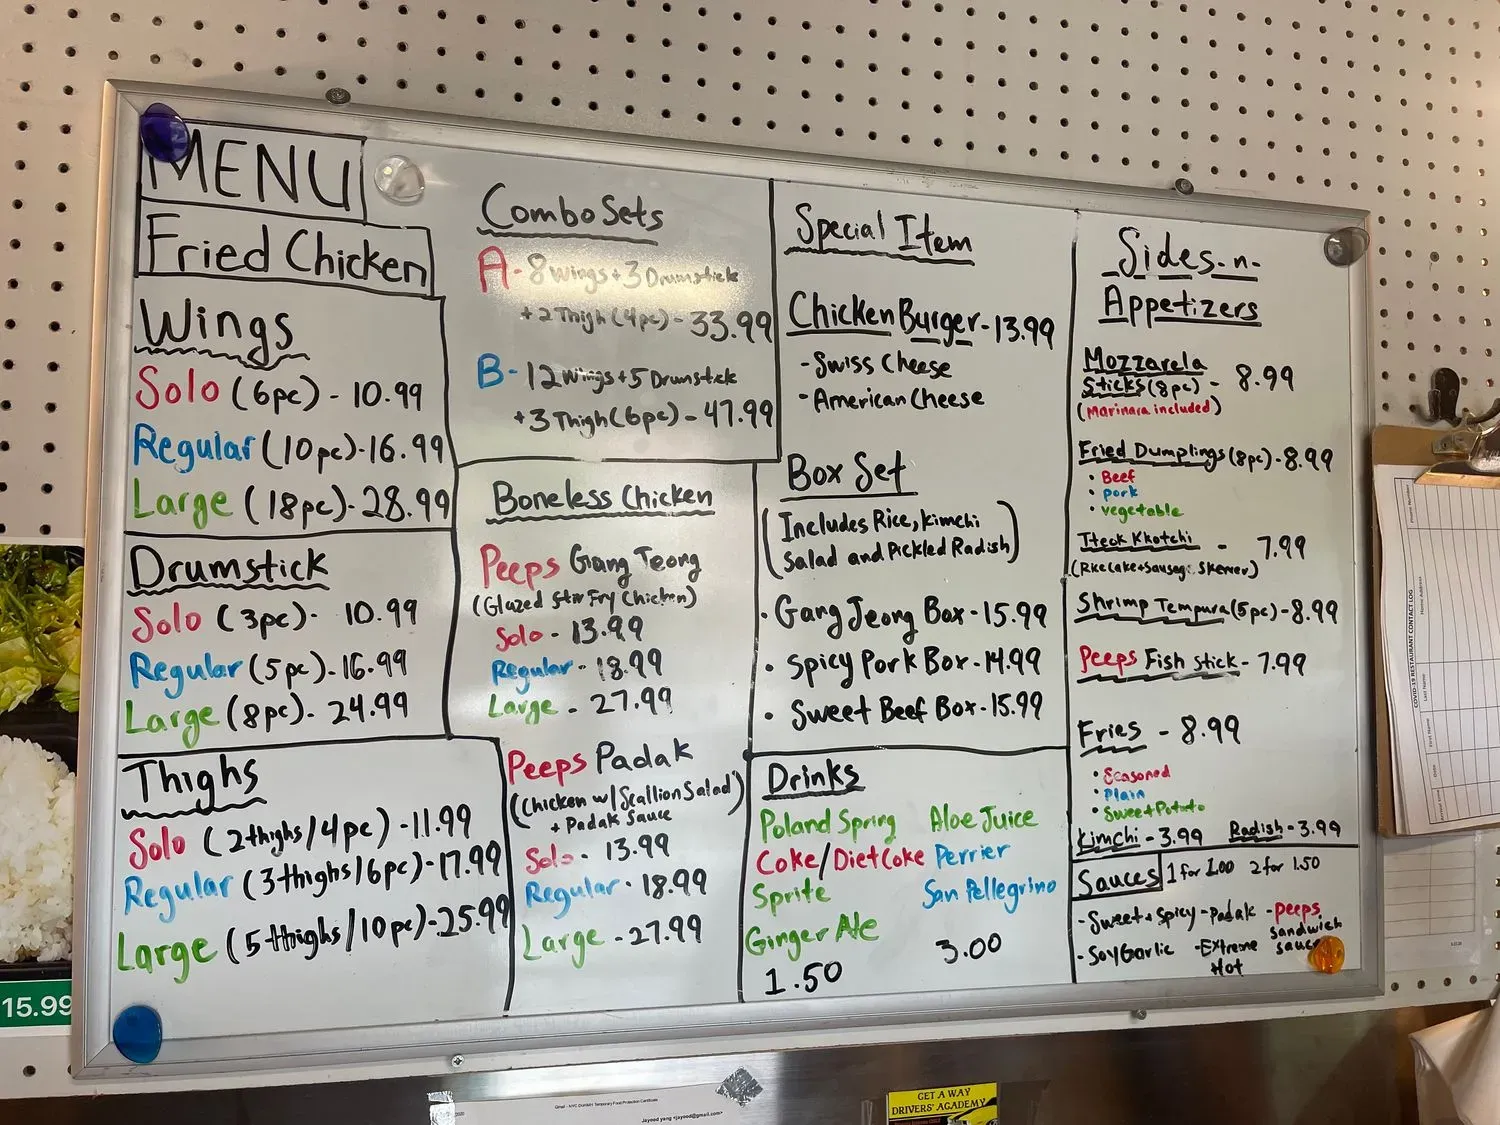 MENU
Fried Chicken
Wings
Solo (6pc) - 10.99
Regular (10pc) - 16.99
Large (18pc) - 28.99
Drumstick
Solo (3pc) - 10.99
Regular (5pc) - 16.99
Large (8pc) - 24.99
Thighs
Solo (2thighs/4pc) - 11.99
Regular (3thighs/6pc) - 17.99
Large (5thighs/10pc) - 25.99
Combo Sets
A - 8 wings + 3 Drumstick
+ 2 Thigh (4pc) - 33.99
B - 12 wings + 5 Drumstick
+ 3 Thigh (6pc) - 47.99
Boneless Chicken
Peeps Gang Jeong
(Glazed Stir Fry Chicken)
Solo - 13.99
Regular - 18.99
Large - 27.99
Peeps Padak
(Chicken w/ Scallion Salad)
+ Padak Sauce
Solo - 13.99
Regular - 18.99
Large - 27.99
Special Item
Chicken Burger - 13.99
- Swiss Cheese
- American Cheese
Box Set
(Includes Rice, Kimchi
Salad and Pickled Radish)
• Gang Jeong Box - 15.99
• Spicy Pork Box - 14.99
• Sweet Beef Box - 15.99
Drinks
Poland Spring
Coke/Diet Coke
Sprite
Ginger Ale
1.50
Aloe Juice
Perrier
San Pellegrino
3.00
Sides-n-
Appetizers
Mozzarela
Sticks (8pc) - 8.99
(Marinara included)
Fried Dumplings (8pc) - 8.99
• Beef
• pork
• vegetable
Tteok Kkotchi - 7.99
(Rice Cake + Sausage Skewer)
Shrimp Tempura (5pc) - 8.99
Peeps Fish stick - 7.99
Fries - 8.99
• Seasoned
• Plain
• Sweet Potato
Kimchi - 3.99 Radish - 3.99
Sauces 1 for 1.00 2 for 1.50
- Sweet + Spicy - Padak - Peeps
sandwich
sauce
- Soy Garlic - Extreme
Hot
15.99
COVID-19 RESTAURANT CONTACT LOG
First Name
Last Name
Home Address
Phone Number
Gmail - NYC DOHMH Temporary Food Protection Certificate
Jayeed yang <jayeed@gmail.com>
GET A WAY
DRIVERS' ACADEMY